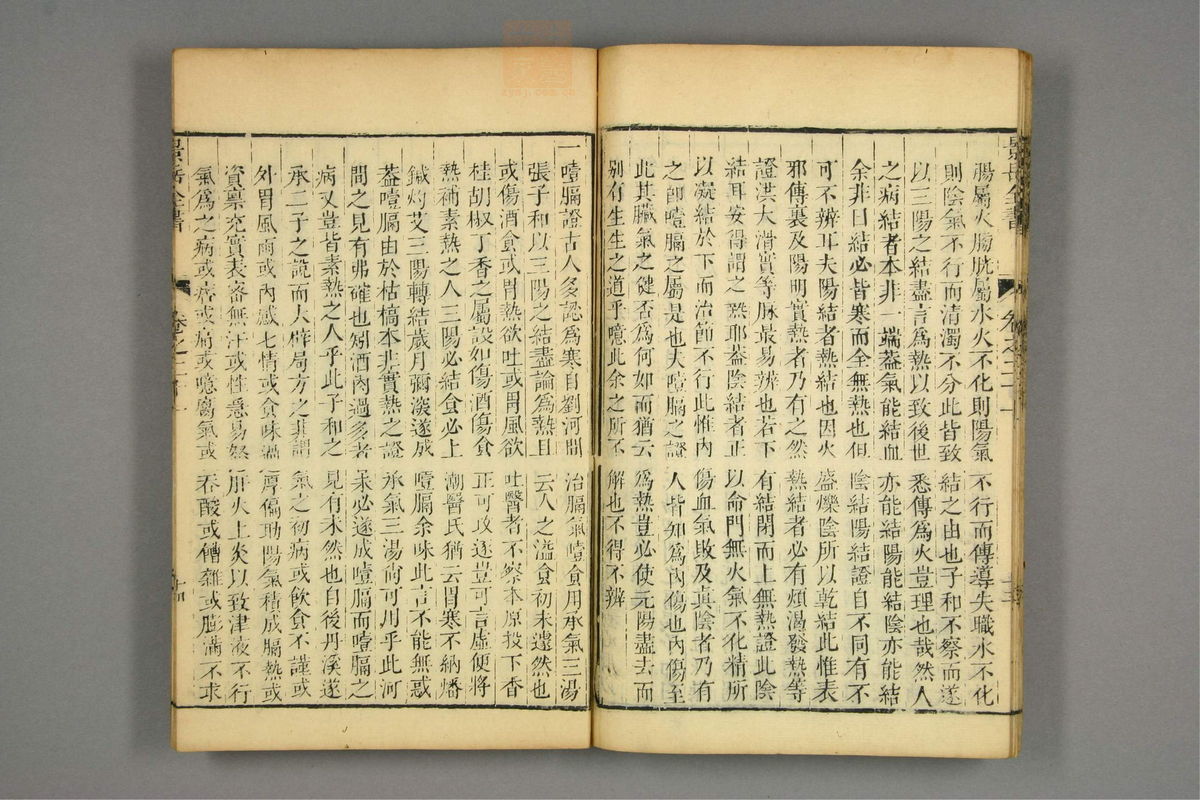 景岳全書
卷之二十一
腸屬火膀胱屬水火不化則陽氣不行而傳導失職水不化
則陰氣不行而清濁不分此皆致結之由也子和不察而遂
以三陽之結盡言爲熱以致後世悉傳爲火豈理也哉然人
之病結者本非一端蓋氣能結血亦能結陽能結陰亦能結
余非曰結必皆寒而全無熱也但陰結陽結證自不同有不
可不辨耳夫陽結者熱結也因火盛爍陰所以乾結此惟表
邪傳裏及陽明實熱者乃有之然熱結者必有煩渴發熱等
證洪大滑實等脉最易辨也若下有結閉而上無熱證此陰
結耳安得謂之熱耶蓋陰結者正以命門無火氣不化精所
以凝結於下而治節不行此惟內傷血氣敗及真陰者乃有
之卽噎膈之屬是也夫噎膈之證人皆知爲內傷也內傷至
此其臟氣之健否爲何如而猶云爲熱豈必使元陽盡去而
別有生生之道乎噫此余之所不解也不得不辨
一噎膈證古人多認爲寒自劉河間治膈氣噎食用承氣三湯
張子和以三陽之結盡論爲熱且云人之溢食初未遽然也
或傷酒食或胃熱欲吐或胃風欲吐醫者不察本原投下香
桂胡椒丁香之屬設如傷酒傷食正可攻逐豈可言虛便將
熱補素熱之人三陽必結食必上潮醫氏猶云胃寒不納燔
鍼灼艾三陽轉結歲月彌深遂成噎膈余味此言不能無惑
蓋噎膈由於枯槁本非實熱之證承氣三湯尙可用乎此河
間之見有弗確也矧酒肉過多者未必遂成噎膈而噎膈之
病又豈皆素熱之人乎此子和之見有未然也自後丹溪遂
承二子之說而大闢局方之非謂氣之初病或飲食不謹或
外冒風雨或內感七情或食味過厚偏助陽氣積成膈熱或
資稟充實表密無汗或性急易怒肝火上炎以致津液不行
氣爲之病或痞或痛或噫腐氣或吞酸或嘈雜或膨滿不求
景岳全書
卷之二十一